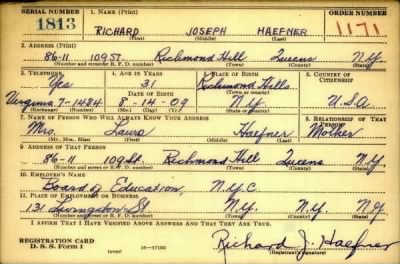 SERIAL NUMBER 1. NAME (Print) ORDER NUMBER
1813 RICHARD JOSEPH HAEFNER 1171
(First) (Middle) (Last)
2. ADDRESS (Print)
86-11 109 ST. Richmond Hill Queens N.Y.
(Number and street or R. F. D. number) (Town) (County) (State)
3. TELEPHONE 4. AGE IN YEARS 5. PLACE OF BIRTH 6. COUNTRY OF CITIZENSHIP
Yes 31 Richmond Hills
DATE OF BIRTH (Town or county)
Virginia 7-1484 8-14-09 N.Y. U.S.A
(Exchange) (Number) (Mo.) (Day) (Yr.) (State or country)
7. NAME OF PERSON WHO WILL ALWAYS KNOW YOUR ADDRESS 8. RELATIONSHIP OF THAT PERSON
Mrs. Laura Haefner Mother
(Mr., Mrs., Miss) (First) (Middle) (Last)
9. ADDRESS OF THAT PERSON
86-11 109 St. Richmond Hill Queens N.Y.
(Number and street or R. F. D. number) (Town) (County) (State)
10. EMPLOYER'S NAME
Board of Education, N.Y.C.
11. PLACE OF EMPLOYMENT OR BUSINESS
131 Livingston St. N.Y. N.Y. N.Y.
(Number and street or R. F. D. number) (Town) (County) (State)
I AFFIRM THAT I HAVE VERIFIED ABOVE ANSWERS AND THAT THEY ARE TRUE.
REGISTRATION CARD
D. S. S. Form 1 (over) 16-17105 Richard J. Haefner
(Registrant's signature)